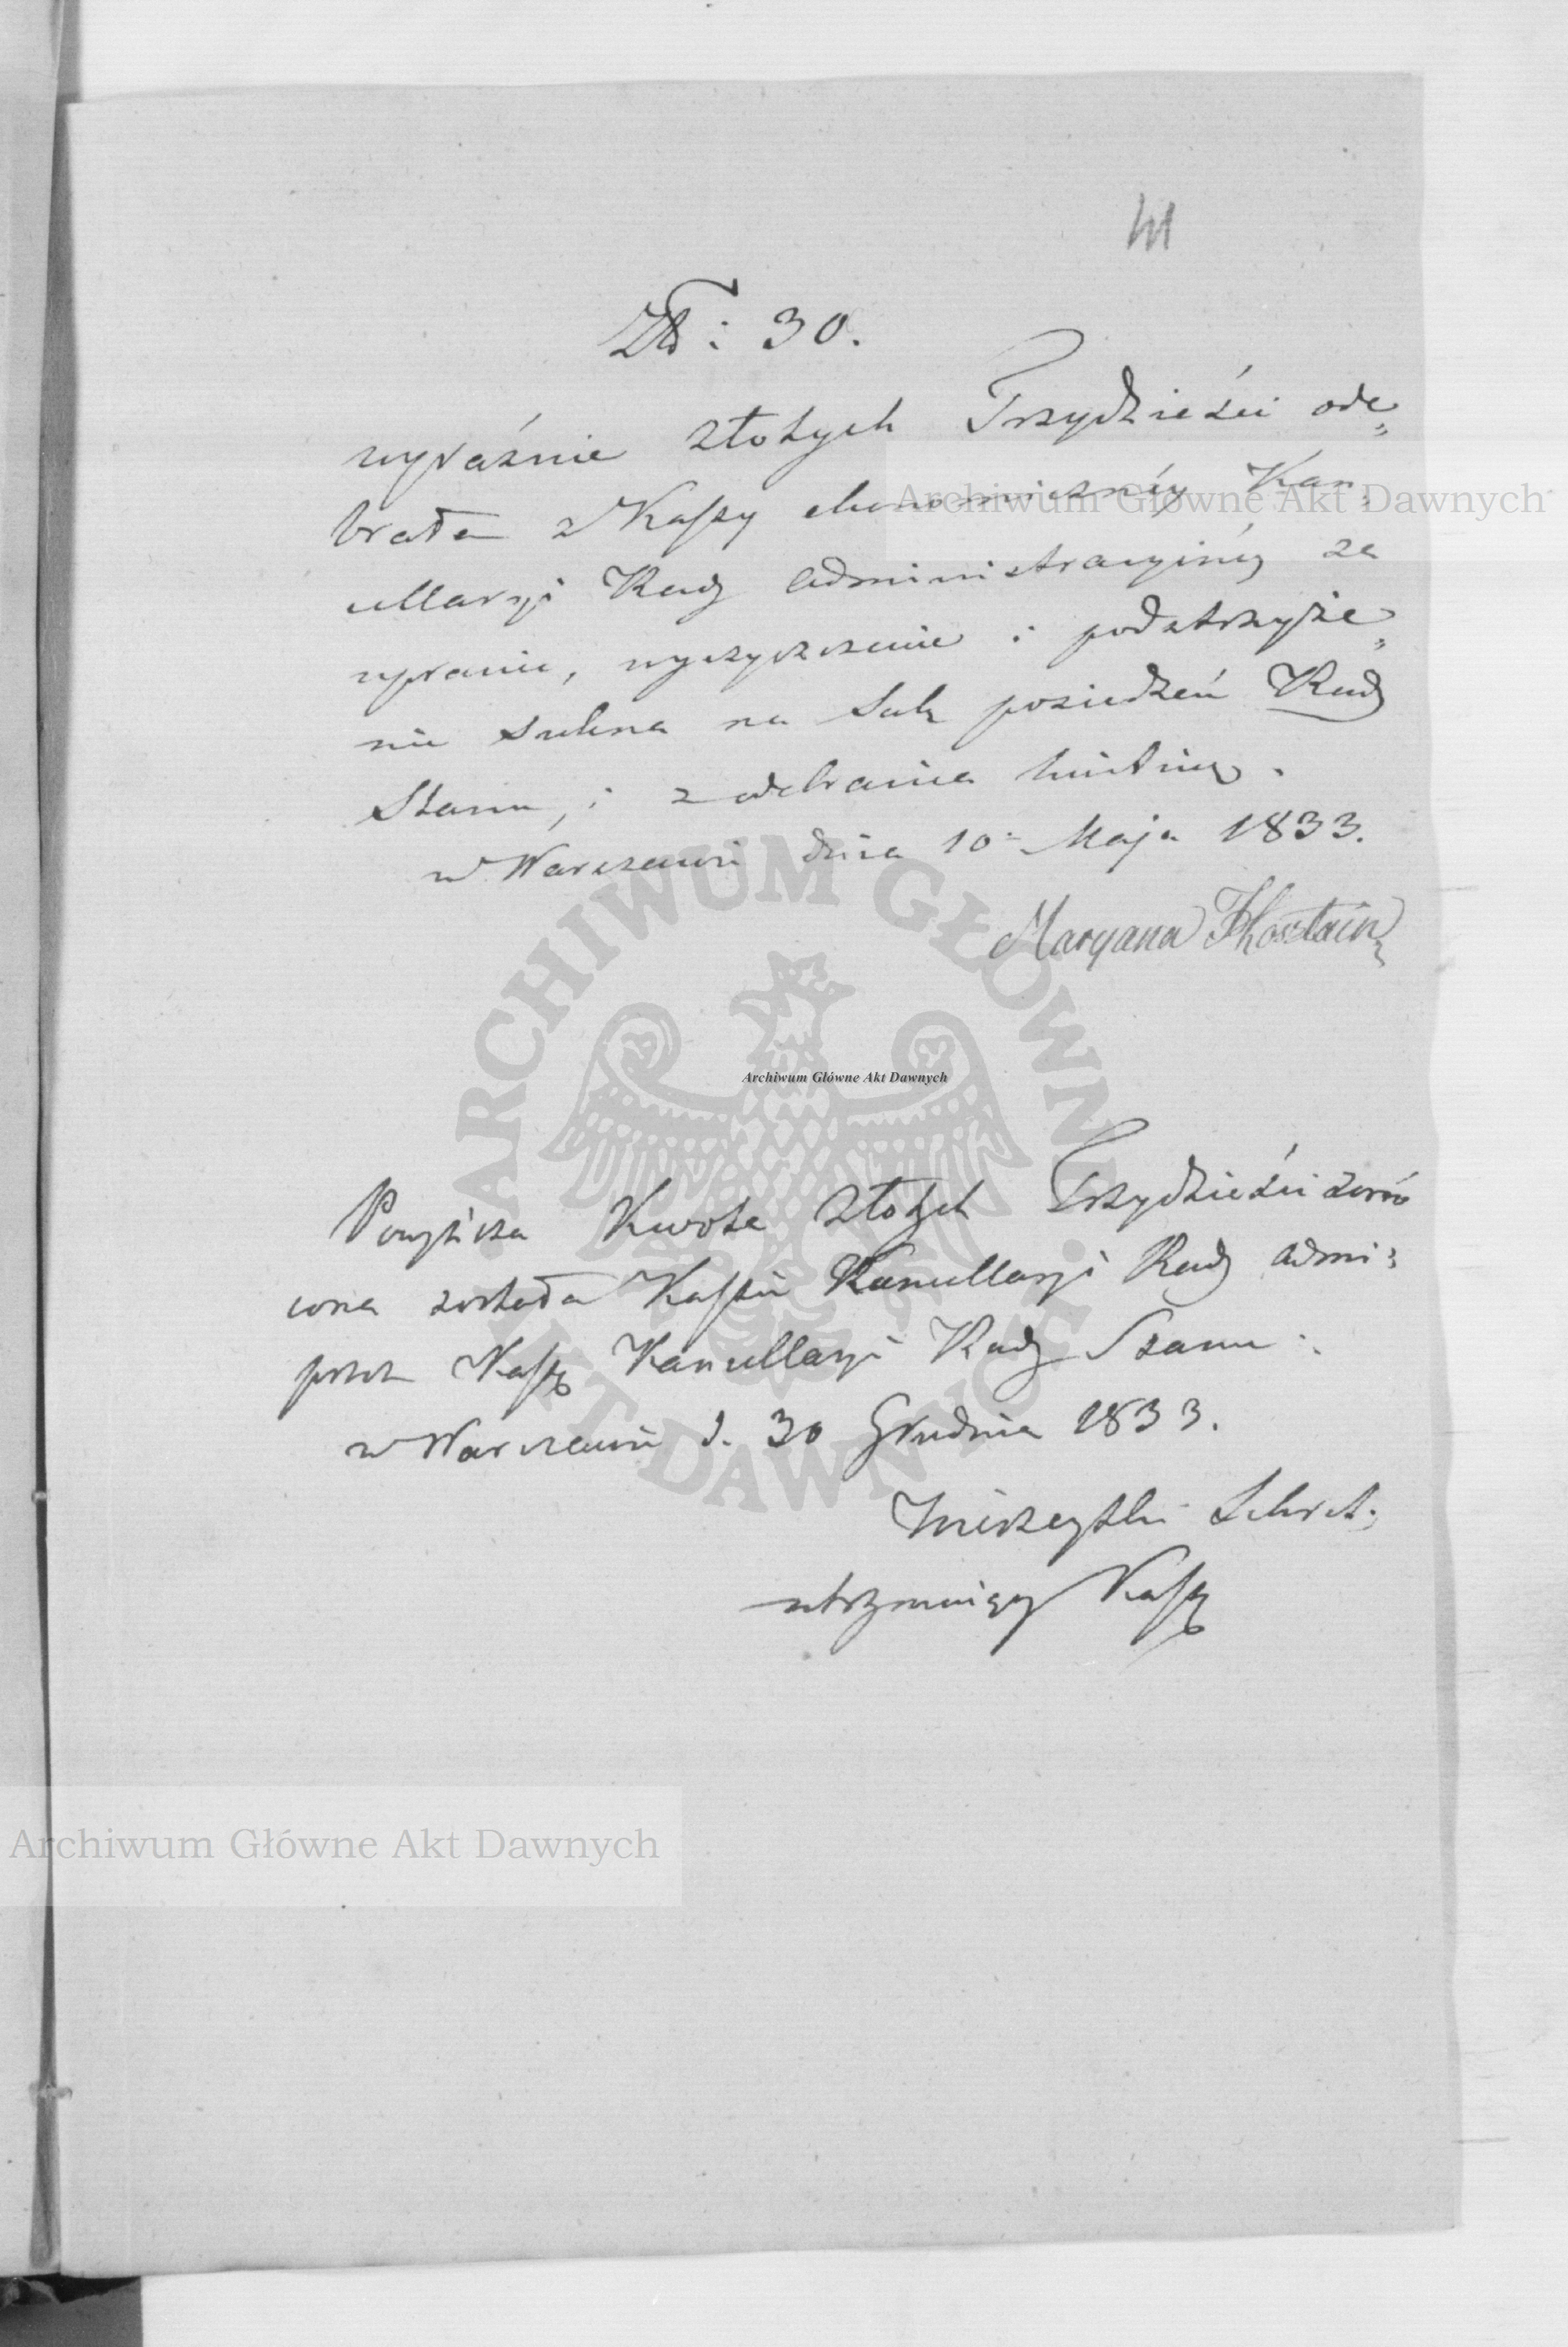 41
Zł: 30.
wyraźnie złotych Trzydzieści ode„
brała z Kassy ekonomicznéy Kan„
cellaryi Rady Administracyinéy za
upranie, wyczyszczenie i podstrzyże„
nie sukna na Salę posiedzeń Rady
Stanu, i z odebrania kwituię.
w Warszawie dnia 10. Maja 1833.
Maryana
Archiwum Główne Akt Dawnych
ARCHIWUM GŁÓWNE AKT DAWNYCH
Archiwum Główne Akt Dawnych
Powyższa Kwota Złotych Trzydzieści zwró
cona została Kassie Kancellaryi Rady Admi:
przez Kassę Kancellaryi Rady Stanu.
w Warszawie d. 30 Grudnia 1833.
Sekret:
utrzymuiący Kassę
Archiwum Główne Akt Dawnych